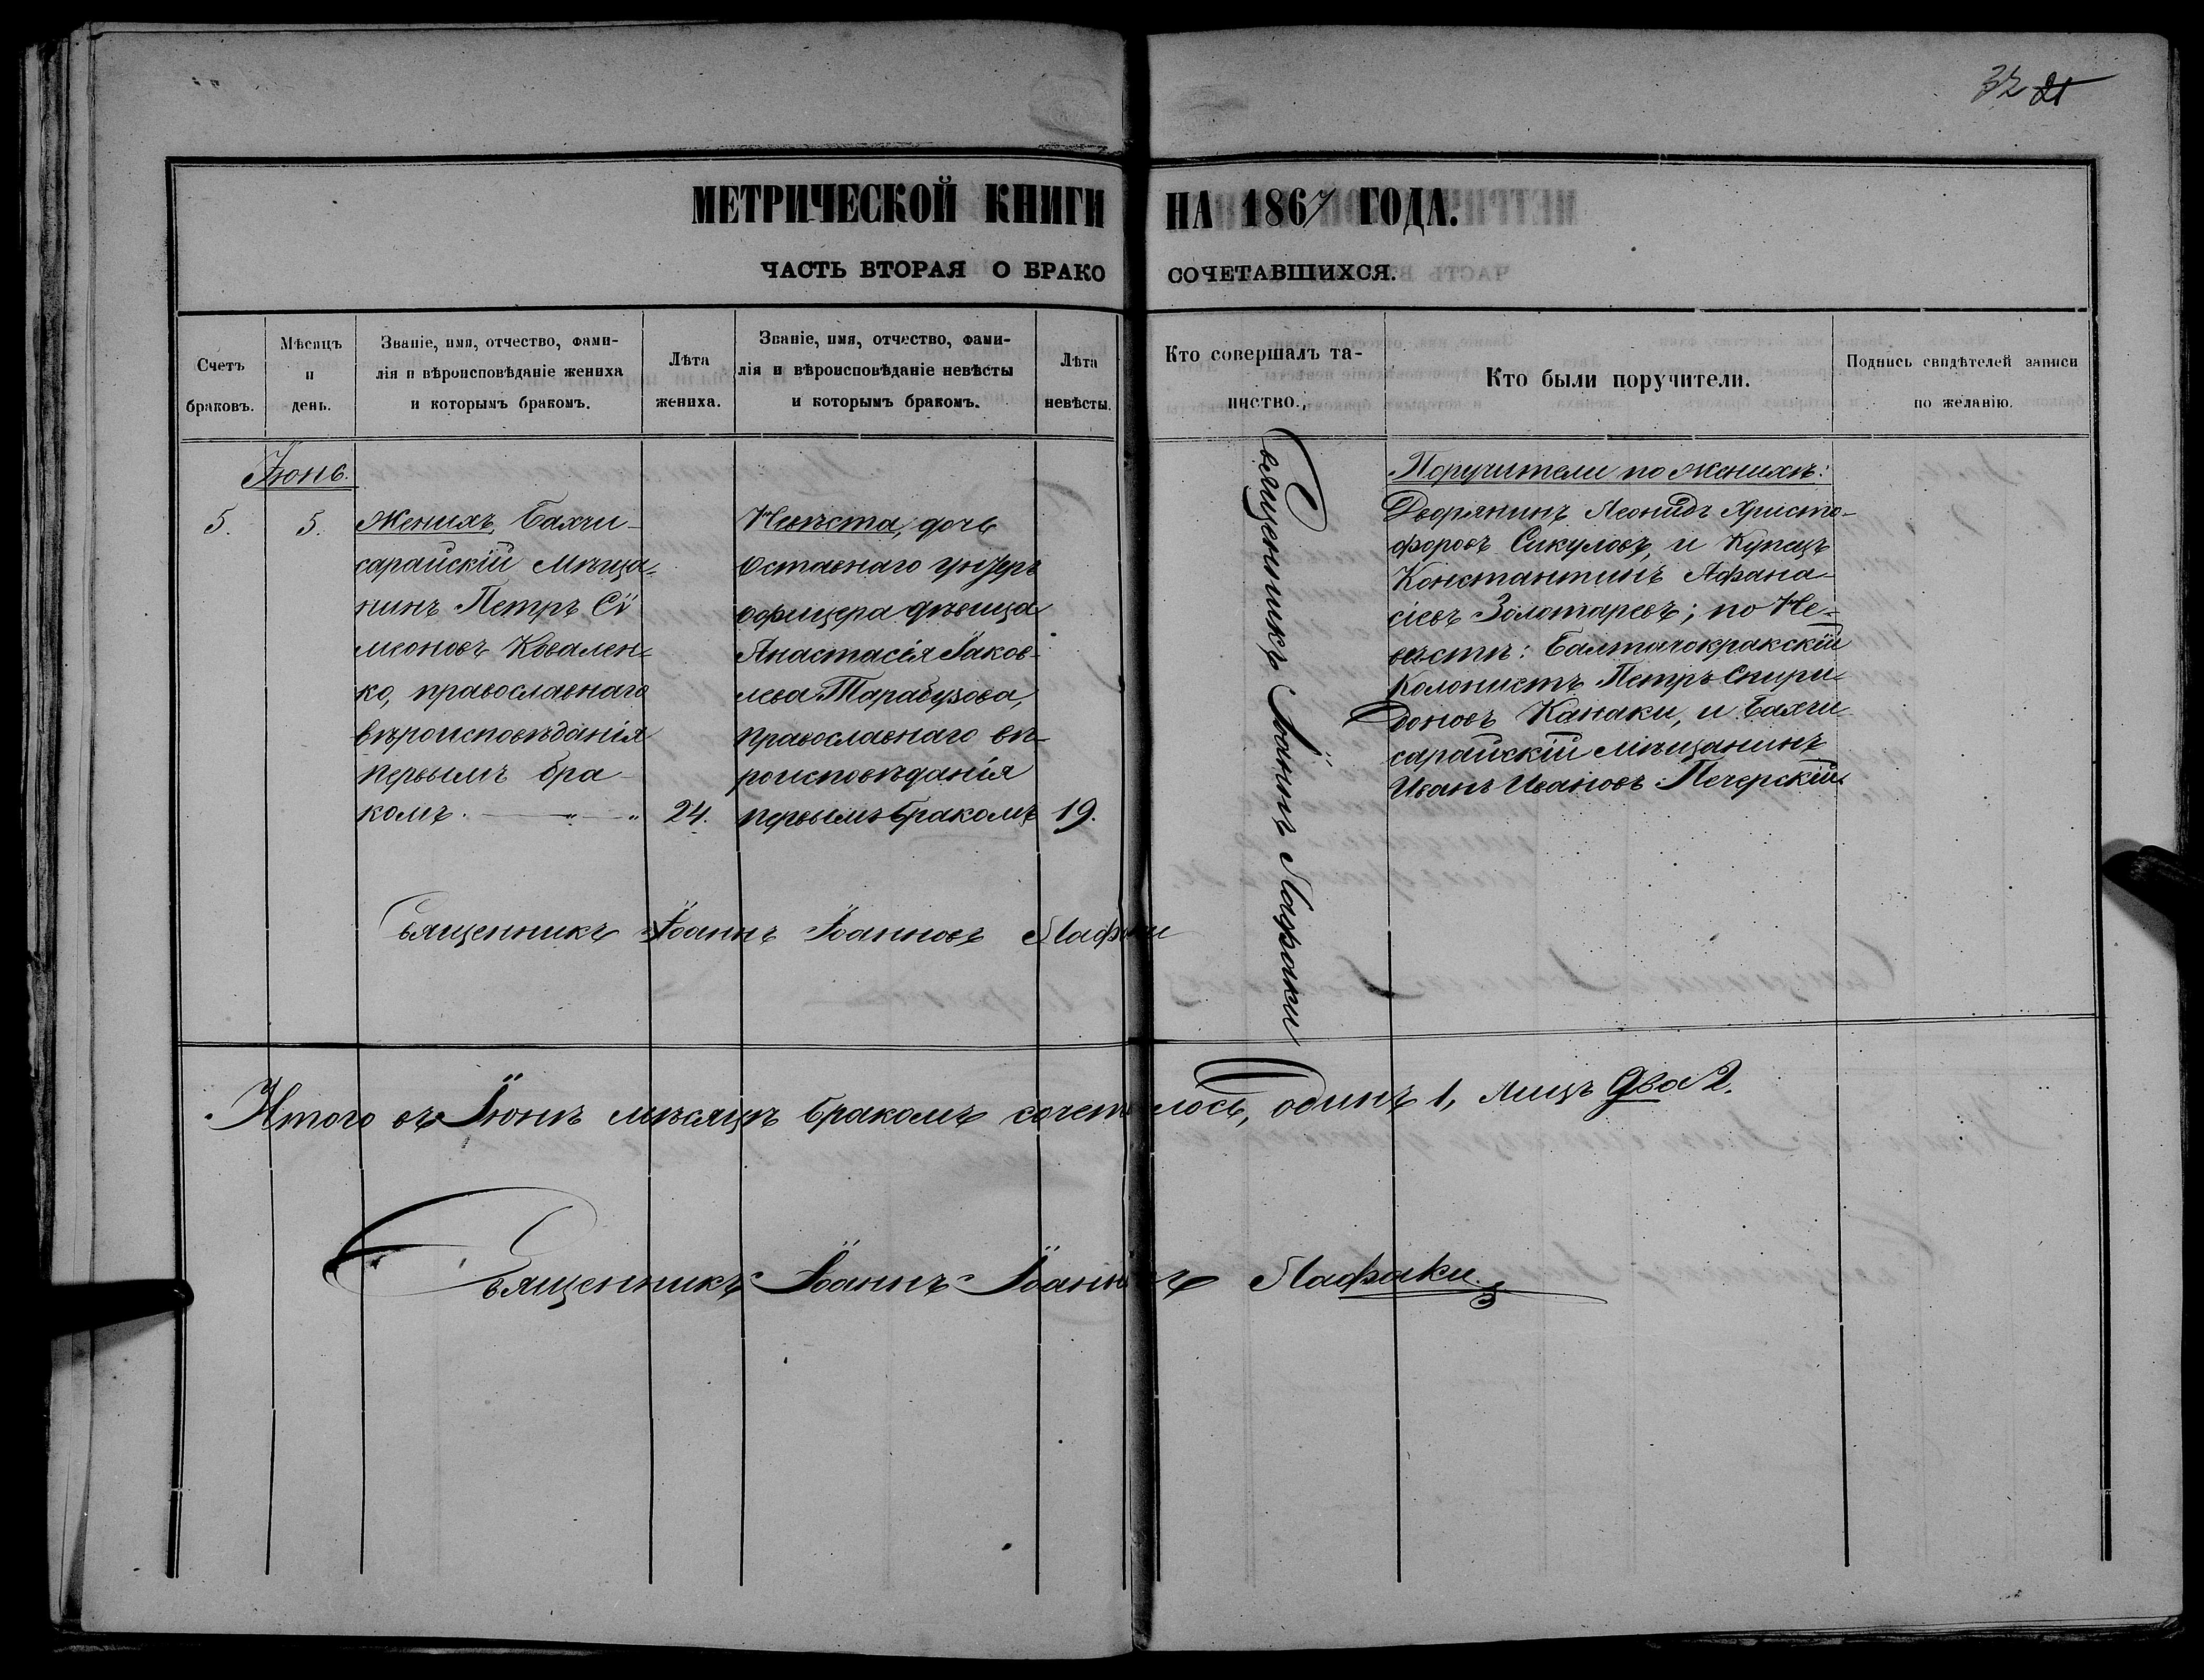 32 21
МЕТРИЧЕСКОЙ КНИГИ НА 1867 ГОДА.
ЧАСТЬ ВТОРАЯ О БРАКО СОЧЕТАВШИХСЯ.
Счетъ
браковъ.
Мѣсяцъ
и
день.
Званіе, имя, отчество, фами-
лія и вѣроисповѣданіе жениха
и которымъ бракомъ.
Лѣта
жениха.
Званіе, имя, отчество, фами-
лія и вѣроисповѣданіе невѣсты
и которымъ бракомъ.
Лѣта
невѣсты.
Кто совершалъ та-
инство.
Кто были поручители.
Подпись свидѣтелей записи
по желанію.
Іюнь.
5.
5.
Женихъ, Бахчи-
сарайскій Мѣща-
нинъ Петръ Сѵ
меоновъ Ковален-
ко, православнаго
вѣроисповѣданія
первымъ бра-
комъ.
24.
Невѣста, дочь
Оставнаго унтеръ
офицера дѣвица
Анастасія Іаков-
лева Тарабузова,
православнаго вѣ-
роисповѣданія
первымъ бракомъ
19.
Священникъ Іоаннъ Лафаки
Поручители по женихѣ:
Дворянинъ Леонидъ Христо-
форовъ Сикуловъ, и Купецъ
Константинъ Афана-
сіевъ Золотаревъ; по Не-
вѣстѣ: Балтачокракскій
Колонистъ Петръ Спири-
доновъ Канаки, и Бахчи-
сарайскій мѣщанинъ
Иванъ Ивановъ Печерскій.
Священникъ Іоаннъ Іоанновъ Лафаки
Итого въ Іюнѣ мѣсяцѣ бракомъ сочеталось, одинъ 1, лицъ два 2.
Священникъ Іоаннъ Іоанновъ Лафаки